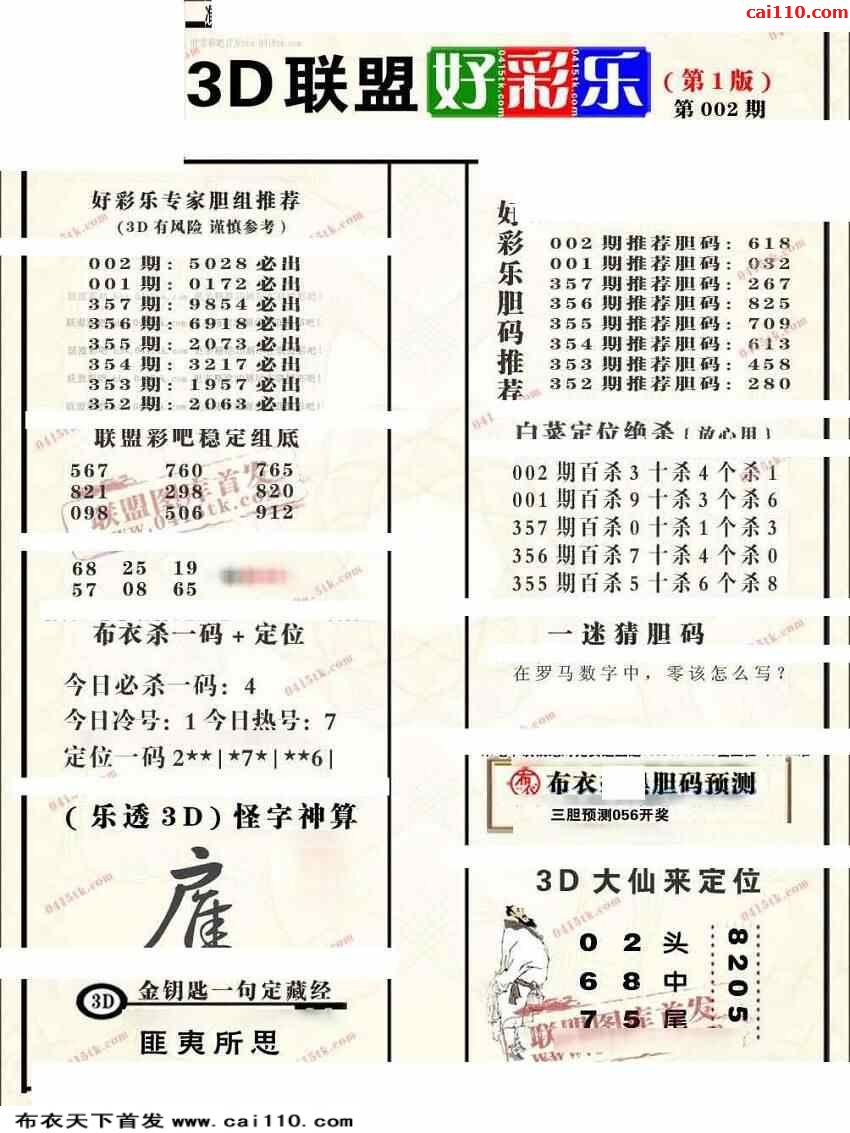 cai110.com
3D联盟好彩乐
(第1版)
第 002 期
好彩乐专家胆组推荐
(3D有风险 谨慎参考)
002期: 5028必出
001期: 0172必出
357期: 9854必出
356期: 6918必出
355期: 2073必出
354期: 3217必出
353期: 1957必出
352期: 2063必出
联盟彩吧稳定组底
567 760 765
821 298 820
098 506 912
联盟图库首发
www.0415tk.com
68 25 19
57 08 65
布衣杀一码+定位
今日必杀一码: 4
今日冷号: 1 今日热号: 7
定位一码2**|*7*|**6|
(乐透3D)怪字神算
3D 金钥匙一句定藏经
匪夷所思
好彩乐胆码推荐
002期推荐胆码: 618
001期推荐胆码: 032
357期推荐胆码: 267
356期推荐胆码: 825
355期推荐胆码: 709
354期推荐胆码: 613
353期推荐胆码: 458
352期推荐胆码: 280
白菜定位绝杀(放心用)
002期百杀3十杀4个杀1
001期百杀9十杀3个杀6
357期百杀0十杀1个杀3
356期百杀7十杀4个杀0
355期百杀5十杀6个杀8
一迷猜胆码
在罗马数字中，零该怎么写?
布衣 胆码预测
三胆预测056开奖
3D大仙来定位
0 2 头
6 8 中
7 5 尾
8205
联盟图库首发
布衣天下首发 www.cai110.com